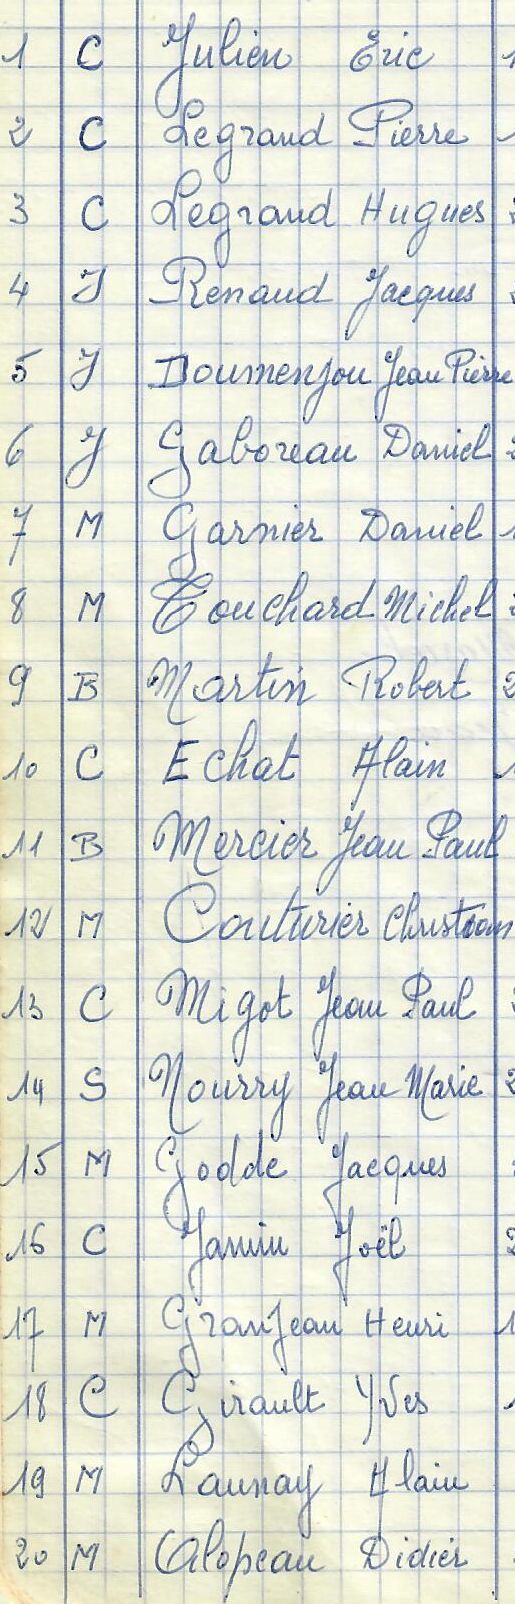 1 C Julien Eric
2 C Legrand Pierre
3 C Legrand Hugues
4 J Renaud Jacques
5 J Doumenjou Jean Pierre
6 J Gaboreau Daniel
7 M Garnier Daniel
8 M Touchard Michel
9 B Martin Robert
10 C Echat Alain
11 B Mercier Jean Paul
12 M Couturier
13 C Migot Jean Paul
14 S Nourry Jean Marie
15 M Godde Jacques
16 C Jamin Joël
17 M GranJean Henri
18 C Girault Yves
19 M Launay Alain
20 M Alopeau Didier